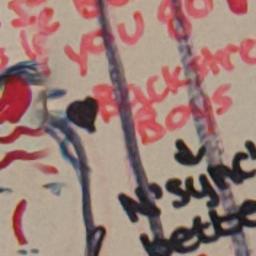 you go
Backstre
Boys
N'sync
bette